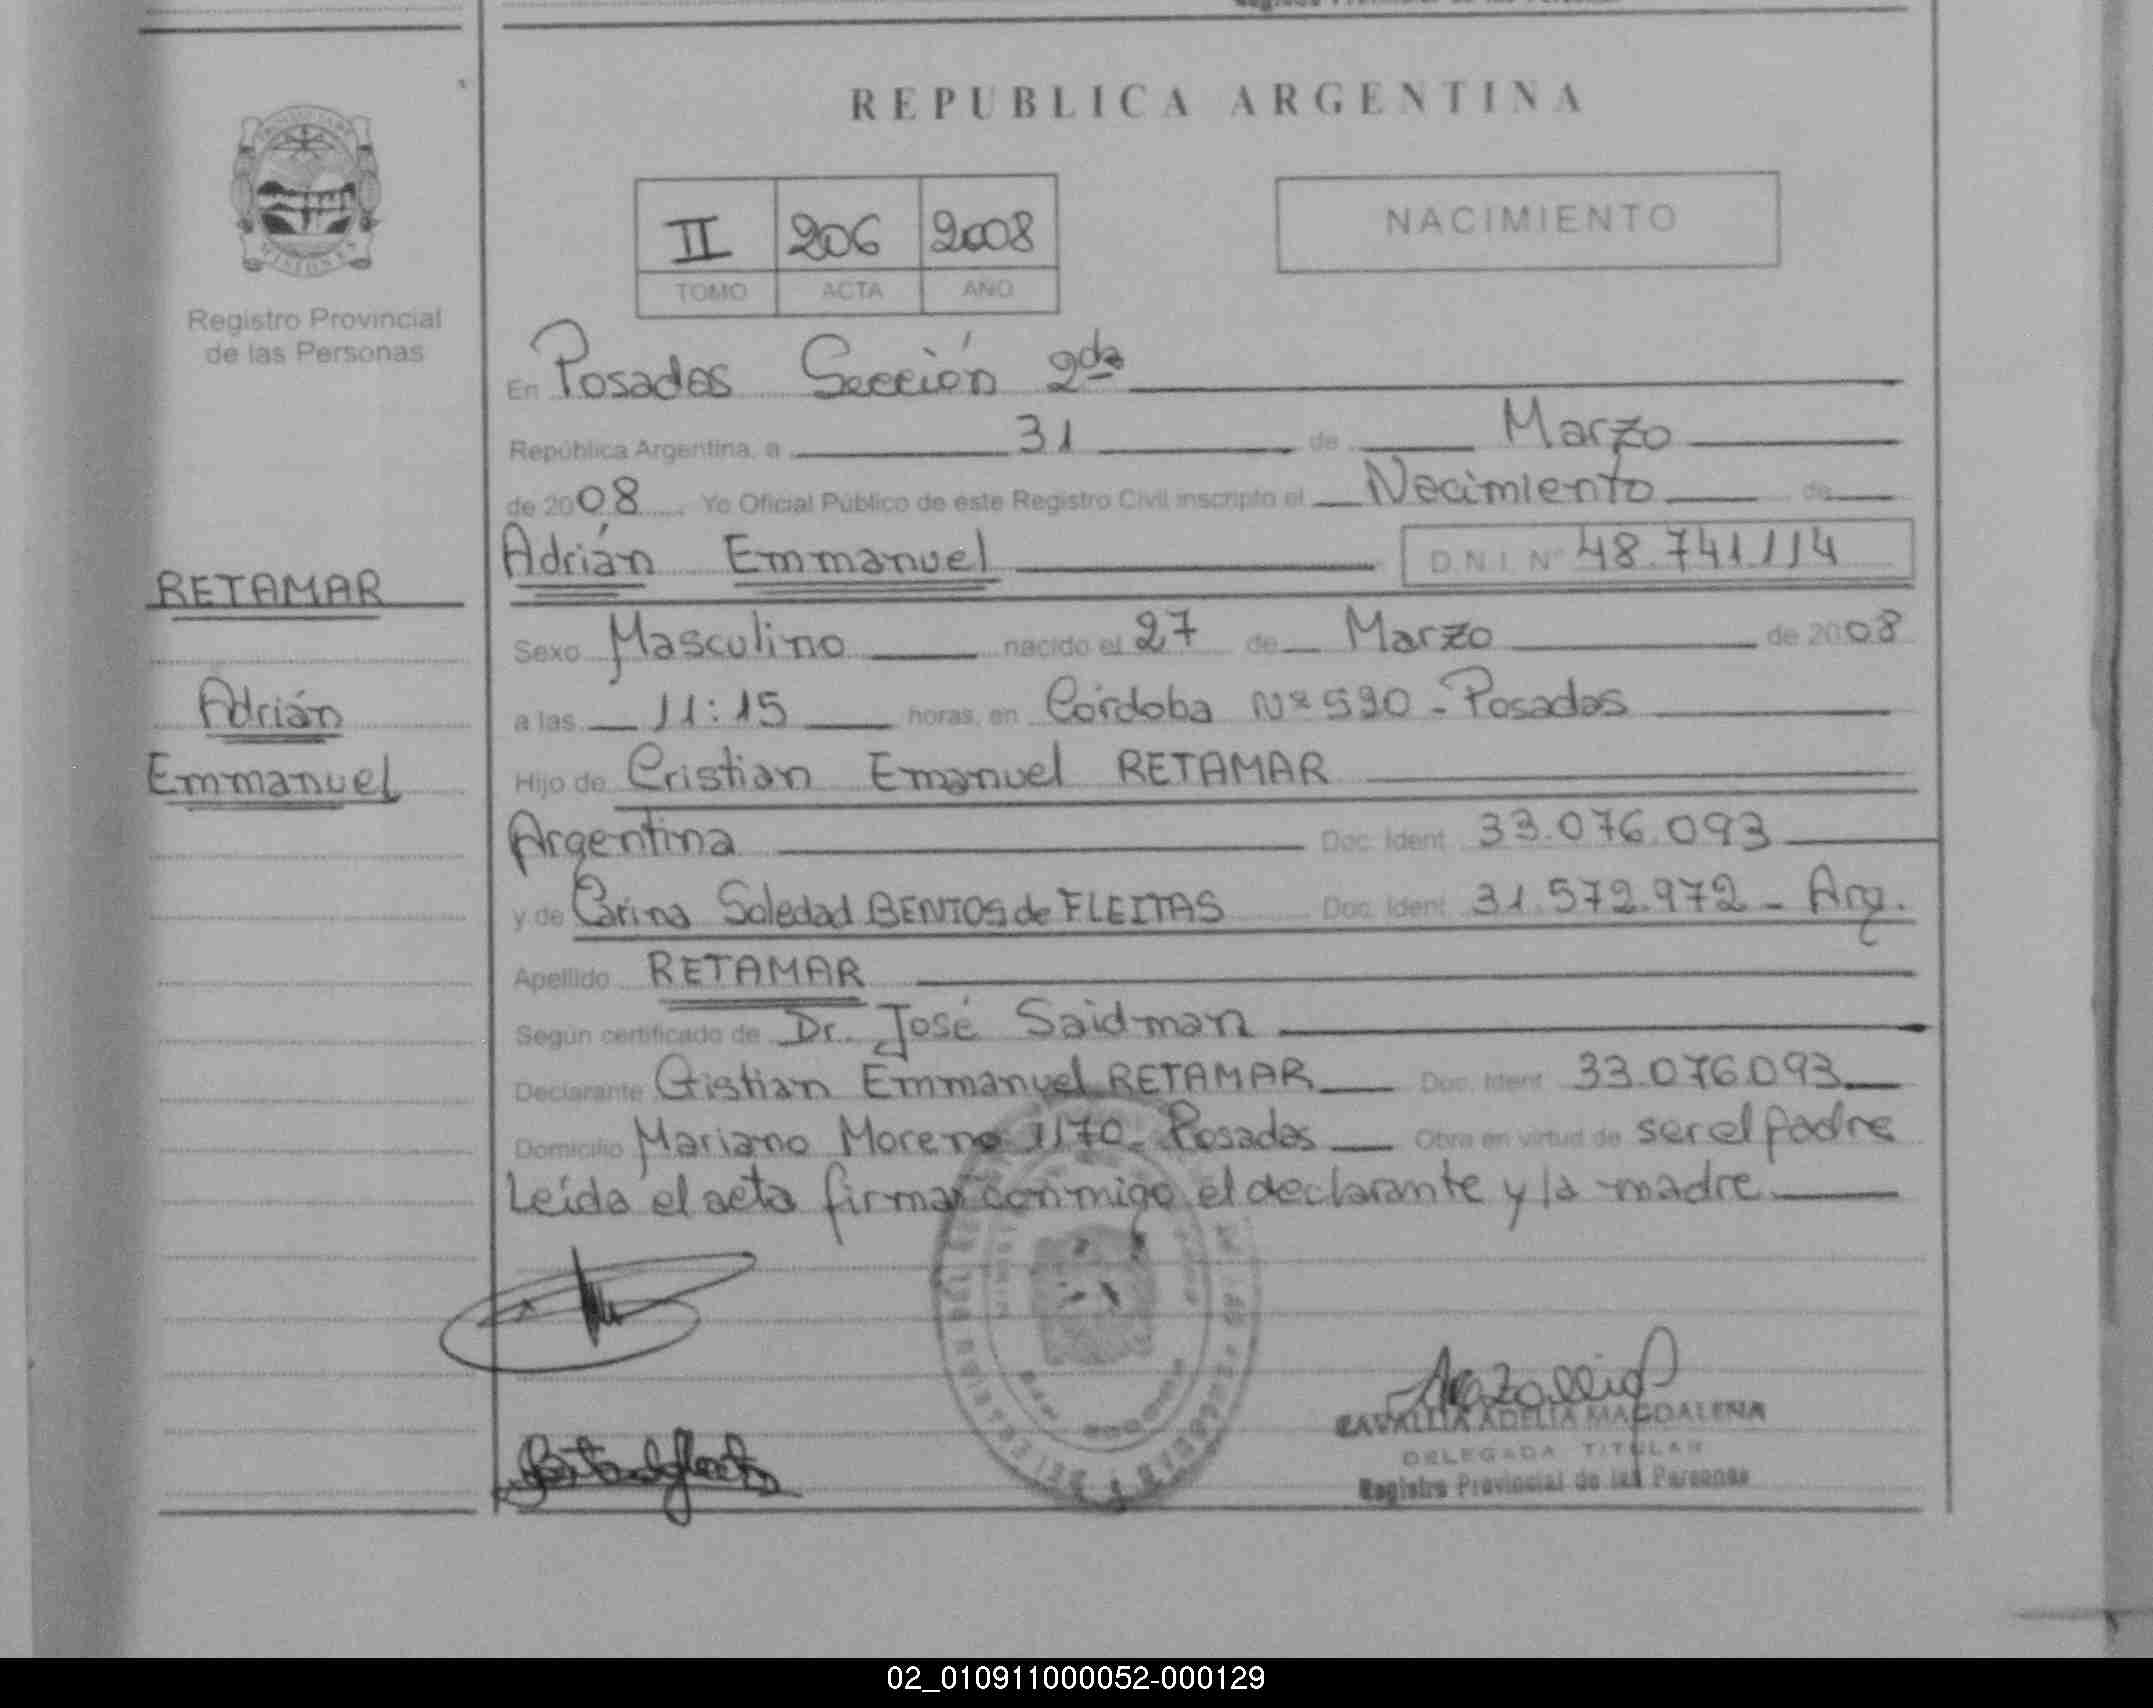 REPUBLICA ARGENTINA
II 206 2008
TOMO ACTA AÑO
NACIMIENTO
MISIONES
Registro Provincial
de las Personas
En Posadas Sección 2da
República Argentina, a 31 de Marzo
de 2008 Yo Oficial Público de este Registro Civil inscripto el Nacimiento de
Adrián Emmanuel D.N.I. Nº 48.741.114
RETAMAR
Adrián
Emmanuel
Sexo Masculino nacido el 27 de Marzo de 2008
a las 11:15 horas, en Córdoba Nº 590 - Posadas
Hijo de Cristian Emanuel RETAMAR
Argentina Doc. Ident. 33.076.093
y de Carina Soledad BENTOS de FLEITAS Doc. Ident. 31.572.972 - Arg.
Apellido RETAMAR
Según certificado de Dr. José Saidman
Declarante Cristian Emmanuel RETAMAR Doc. Ident. 33.076.093
Domicilio Mariano Moreno 1170 - Posadas Obra en virtud de ser el padre
Leída el acta firman conmigo el declarante y la madre
ADELIA MAGDALENA
DELEGADA TITULAR
Registro Provincial de las Personas
02_010911000052-000129